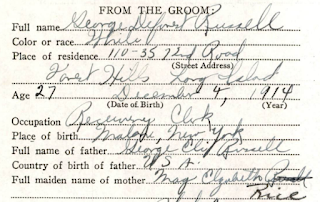 FROM THE GROOM
Full name George Deforest Russell
Color or race White
Place of residence 110-35 72nd Road
(Street Address)
Forest Hills Long Island
Age 27 December 4, 1914
(Date of Birth) (Year)
Occupation Receiving Clerk
Place of birth Malone, New York
Full name of father George Russell
Country of birth of father U.S.A.
Full maiden name of mother May Elizabeth
Rice